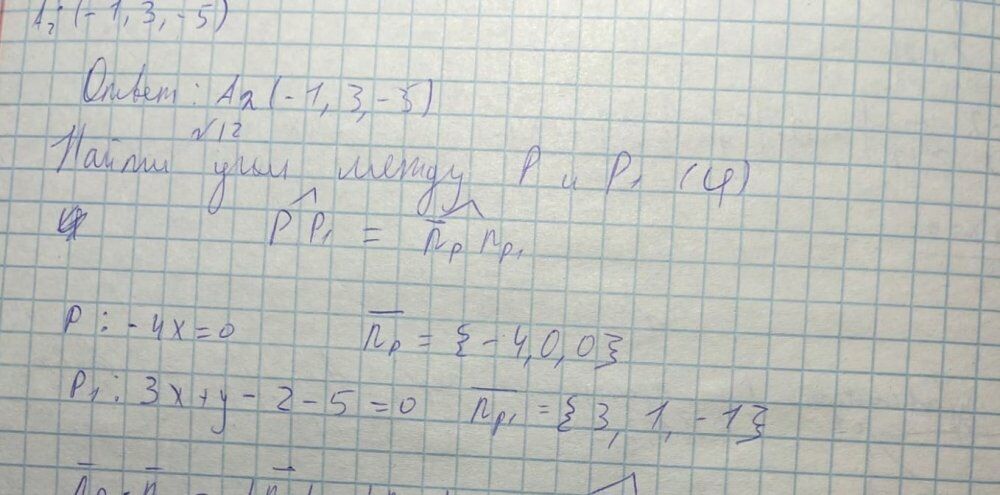 A₂ (-1, 3, -5)
Ответ: A₂ (-1, 3, -5)
№12
Найти угол между P и P₁ (φ)
P P₁ = n̅ₚ nₚ₁
P: -4x=0 n̅ₚ = {-4,0,0}
P₁: 3x+y-z-5=0 n̅ₚ₁ = {3, 1, -1}